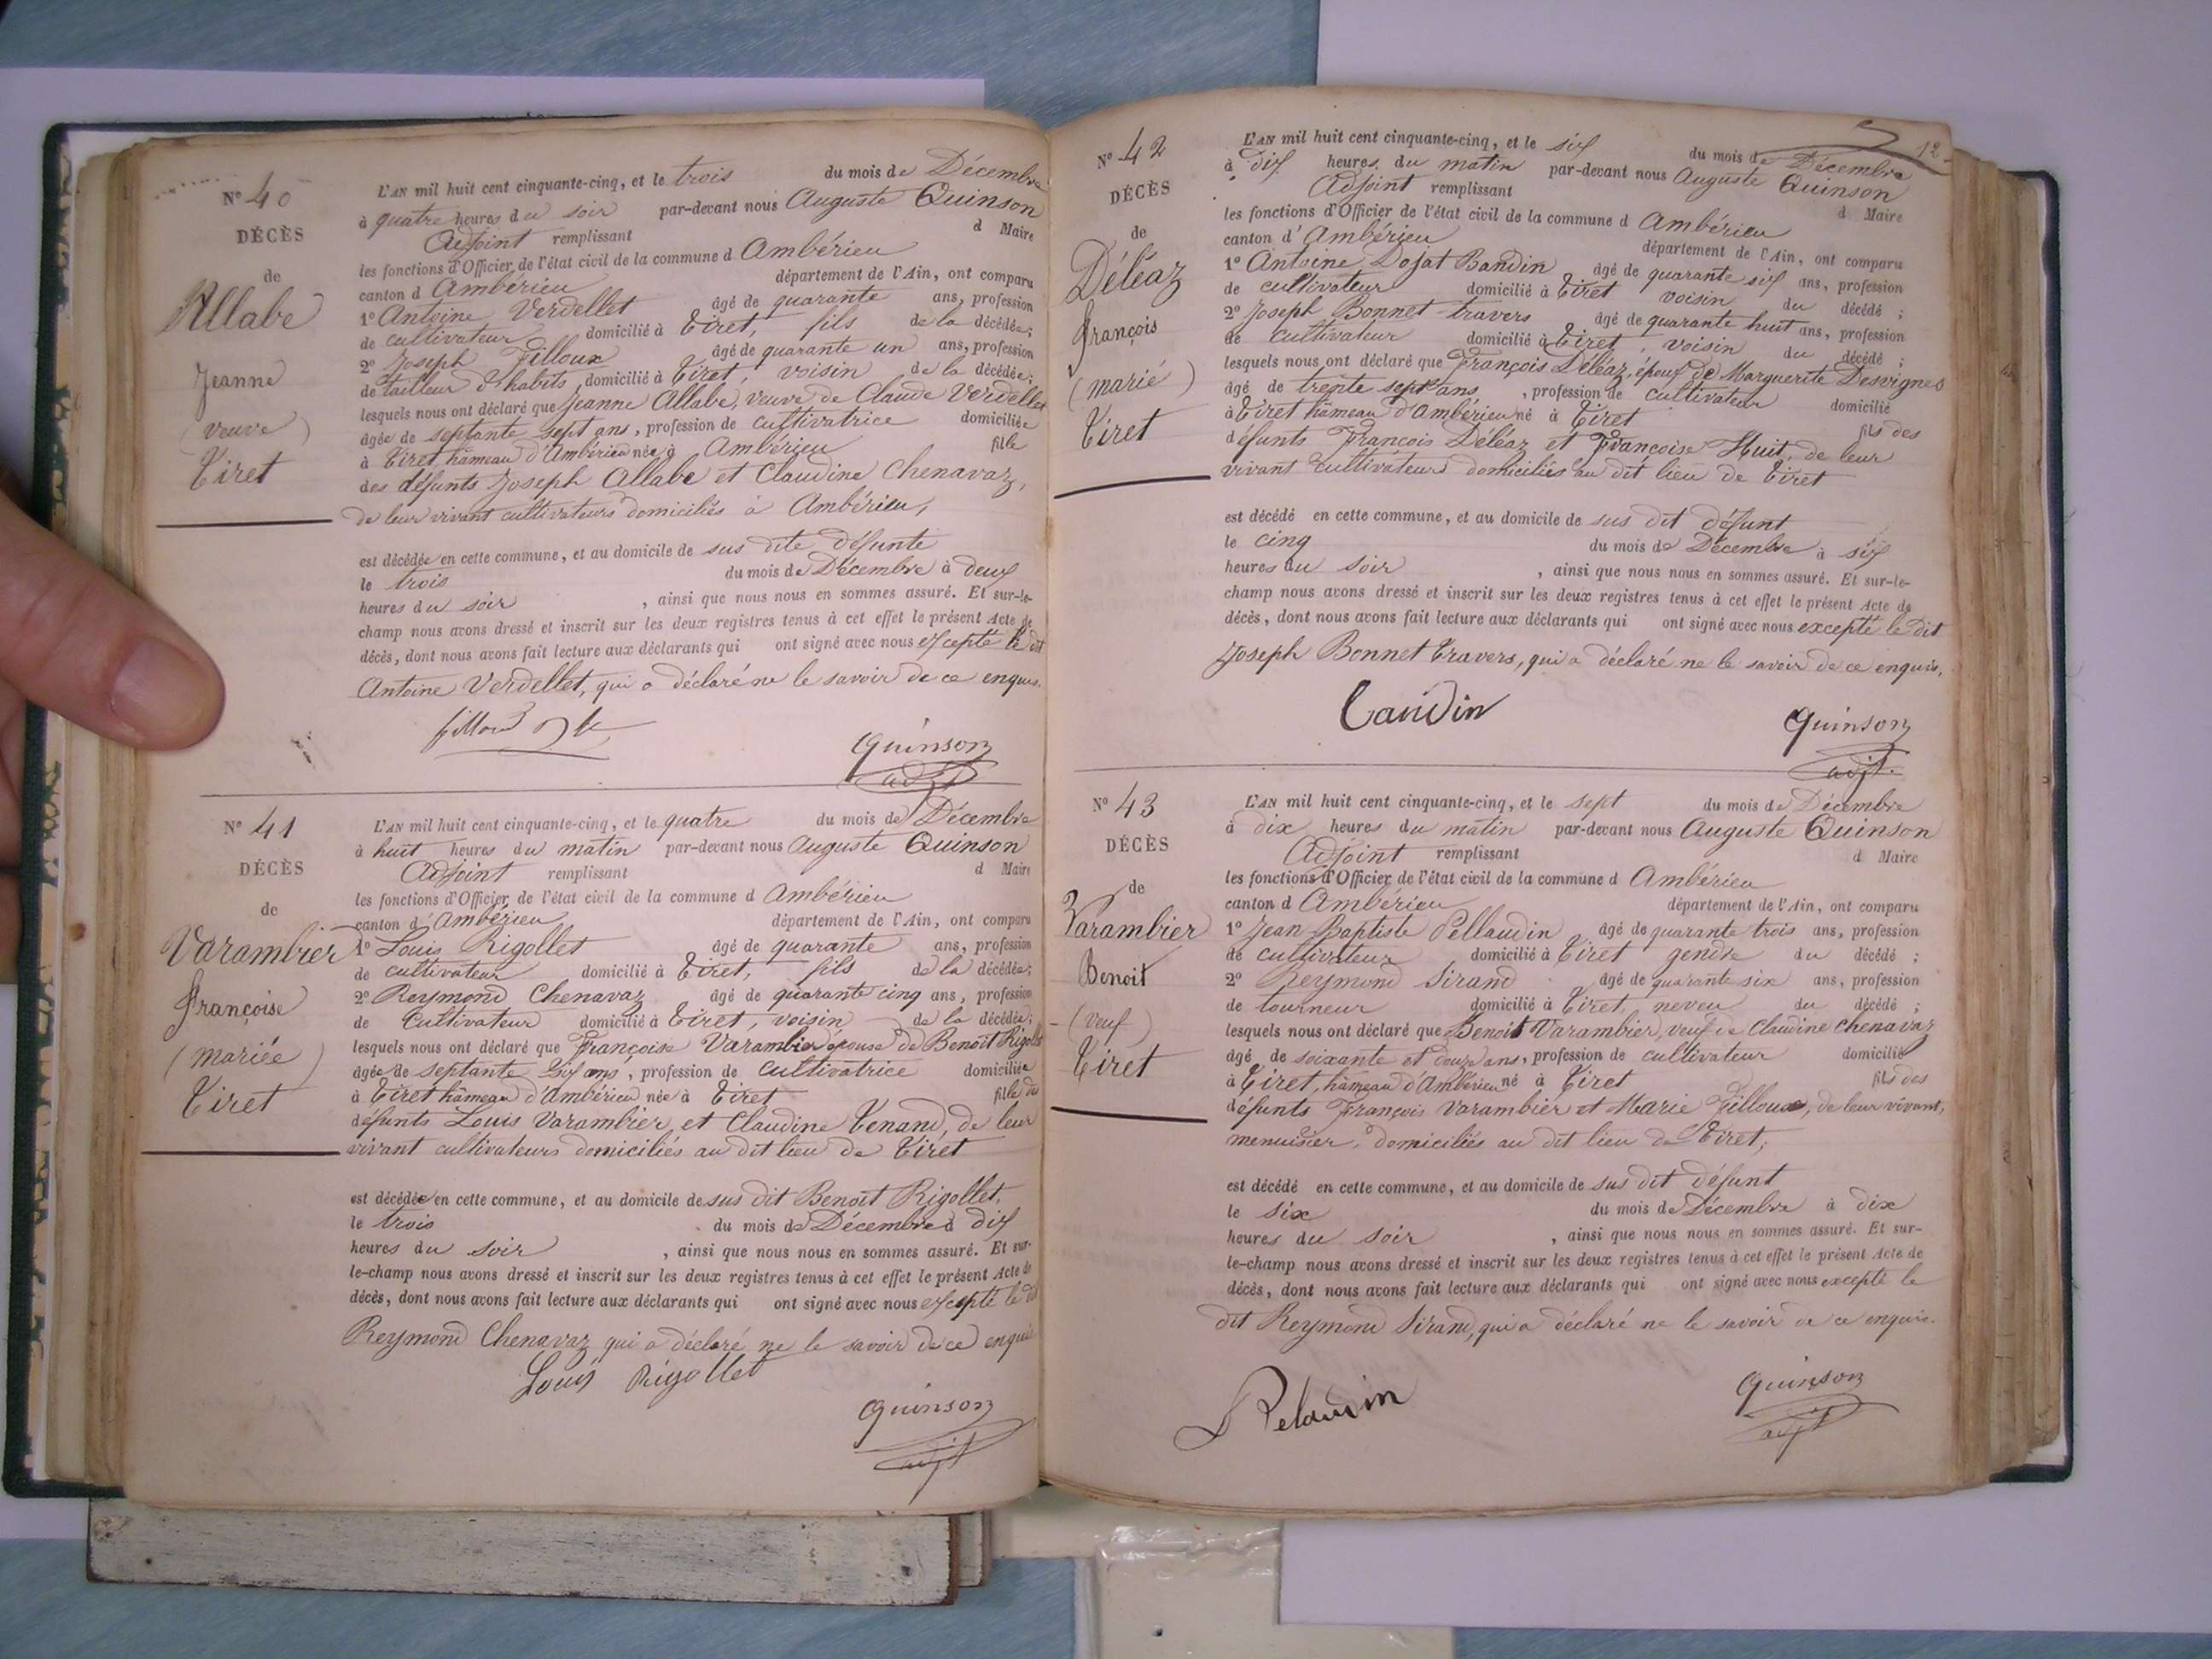 N° 40
DÉCÈS
de
Allabe
Jeanne
(veuve)
Tiret
L'AN mil huit cent cinquante-cinq, et le trois du mois de Décembre
à quatre heures du soir par-devant nous Auguste Quinson
Adjoint remplissant d Maire
les fonctions d'Officier de l'état civil de la commune d Ambérieu
canton d Ambérieu département de l'Ain, ont comparu
1° Antoine Verdellet âgé de quarante ans, profession
de cultivateur domicilié à Tiret, fils de la décédée;
2° Joseph Filloux âgé de quarante un ans, profession
de tailleur d'habits, domicilié à Tiret, voisin de la décédée;
lesquels nous ont déclaré que Jeanne Allabe, veuve de Claude Verdellet
âgée de septante sept ans, profession de cultivatrice domiciliée
à Tiret, hâmeau d'Ambérieu née à Ambérieu fille
des défunts Joseph Allabe et Claudine Chenavaz,
de leur vivant cultivateurs domiciliés à Ambérieu,
est décédée en cette commune, et au domicile de sus dite défunte
le trois du mois de Décembre à deux
heures du soir, ainsi que nous nous en sommes assuré. Et sur-le-
champ nous avons dressé et inscrit sur les deux registres tenus à cet effet le présent Acte de
décès, dont nous avons fait lecture aux déclarants qui ont signé avec nous excepté le dit
Antoine Verdellet, qui a déclaré ne le savoir de ce enquis.
Quinson
adjt
N° 41
DÉCÈS
de
Varambier
Françoise
(mariée)
Tiret
L'AN mil huit cent cinquante-cinq, et le quatre du mois de Décembre
à huit heures du matin par-devant nous Auguste Quinson
Adjoint remplissant d Maire
les fonctions d'Officier de l'état civil de la commune d Ambérieu
canton d'Ambérieu département de l'Ain, ont comparu
1° Louis Rigollet âgé de quarante ans, profession
de cultivateur domicilié à Tiret, fils de la décédée;
2° Reymond Chenavaz âgé de quarante cinq ans, profession
de Cultivateur domicilié à Tiret, voisin de la décédée;
lesquels nous ont déclaré que Françoise Varambier épouse de Benoît Rigollet
âgée de septante six ans, profession de cultivatrice domiciliée
à Tiret hâmeau d'Ambérieu née à Tiret fille des
défunts Louis Varambier et Claudine Tenand, de leur
vivant cultivateurs domiciliés au dit lieu de Tiret
est décédée en cette commune, et au domicile de sus dit Benoît Rigollet,
le trois du mois de Décembre à dix
heures du soir, ainsi que nous nous en sommes assuré. Et sur-
le-champ nous avons dressé et inscrit sur les deux registres tenus à cet effet le présent Acte de
décès, dont nous avons fait lecture aux déclarants qui ont signé avec nous excepté le dit
Reymond Chenavaz qui a déclaré ne le savoir de ce enquis
Louis Rigollet
Quinson
adjt
12
N° 42
DÉCÈS
de
Déléaz
François
(marié)
Tiret
L'AN mil huit cent cinquante-cinq, et le six du mois de Décembre
à dix heures du matin par-devant nous Auguste Quinson
Adjoint remplissant d Maire
les fonctions d'Officier de l'état civil de la commune d Ambérieu
canton d'Ambérieu département de l'Ain, ont comparu
1° Antoine Dojat Bandin âgé de quarante six ans, profession
de cultivateur domicilié à Tiret voisin du décédé;
2° Joseph Bonnet-travers âgé de quarante huit ans, profession
de cultivateur domicilié à Tiret, voisin du décédé;
lesquels nous ont déclaré que François Déléaz, époux de Marguerite Desvignes
âgé de trente sept ans, profession de cultivateur domicilié
à Tiret hâmeau d'Ambérieu né à Tiret fils des
défunts François Déléaz et Françoise Huit, de leur
vivant cultivateurs domiciliés au dit lieu de Tiret
est décédé en cette commune, et au domicile de sus dit défunt
le cinq du mois de Décembre à six
heures du soir, ainsi que nous nous en sommes assuré. Et sur-le-
champ nous avons dressé et inscrit sur les deux registres tenus à cet effet le présent Acte de
décès, dont nous avons fait lecture aux déclarants qui ont signé avec nous excepté le dit
Joseph Bonnet Travers, qui a déclaré ne le savoir de ce enquis,
Quinson
adjt.
N° 43
DÉCÈS
de
Varambier
Benoit
(veuf)
Tiret
L'AN mil huit cent cinquante-cinq, et le sept du mois de Décembre
à dix heures du matin par-devant nous Auguste Quinson
Adjoint remplissant d Maire
les fonctions d'Officier de l'état civil de la commune d Ambérieu
canton d Ambérieu département de l'Ain, ont comparu
1° Jean Baptiste Pellaudin âgé de quarante trois ans, profession
de cultivateur domicilié à Tiret gendre du décédé;
2° Reymond Sirand âgé de quarante six ans, profession
de tourneur domicilié à Tiret, neveu du décédé;
lesquels nous ont déclaré que Benoit Varambier, veuf de Claudine Chenavaz
âgé de soixante et douze ans, profession de cultivateur domicilié
à Tiret, hâmeau d'Ambérieu né à Tiret fils des
défunts François Varambier et Marie Filloux, de leur vivant,
menuisier, domiciliés au dit lieu de Tiret,
est décédé en cette commune, et au domicile de sus dit défunt
le six du mois de Décembre à dix
heures du soir, ainsi que nous nous en sommes assuré. Et sur-
le-champ nous avons dressé et inscrit sur les deux registres tenus à cet effet le présent Acte de
décès, dont nous avons fait lecture aux déclarants qui ont signé avec nous excepté le
dit Reymond Sirand, qui a déclaré ne le savoir de ce enquis.
Pelaudin
Quinson
adjt